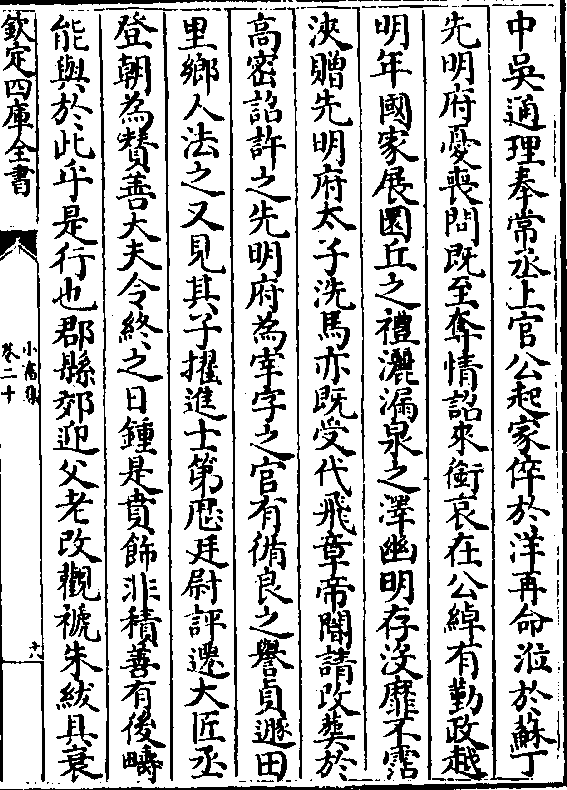 中吳通理奉常丞上官公起家倅於洋再命涖於蘇丁
先明府憂喪問既至奪情詔來銜哀在公綽有勤政越
明年國家展圜丘之禮灑漏泉之澤幽明存没靡不霑
浹贈先明府太子洗馬亦既受代飛章帝閽請改葬於
高密詔許之先明府為宰字之官有脩良之譽貞遯田
里鄉人法之又見其子擢進士第歴廷尉評遷大匠丞
登朝為贊善大夫令終之日鍾是賁飾非積善有後疇
能與於此乎是行也郡縣郊迎父老改觀褫朱紱具衰
欽定四庫全書
小畜集
卷二十
十八